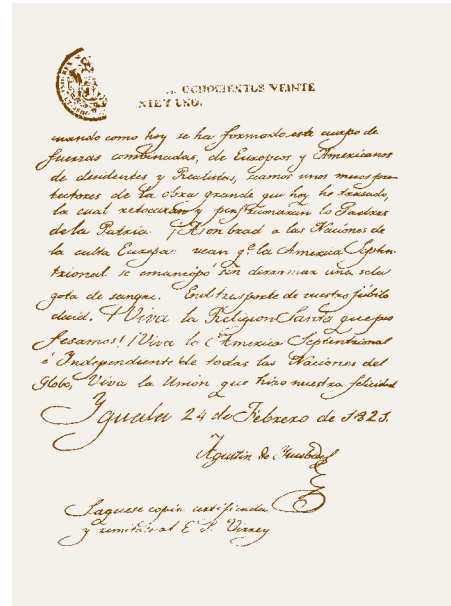 OCHOCIENTOS VEINTE
NTE Y UNO.
mando como hoy se ha formado este cuerpo de
fuerzas combinadas, de Europeos y Americanos
de disidentes y Realistas, seamos unos meros pro-
tectores de la obra grande que hoy he trasado,
la cual retocaran y perfeccionaran lo Padres
de la Patria. ¡Asombrad a las Naciones de
la culta Europa: vean q.e la America Septen-
trional se emancipó sin derramar una sola
gota de sangre. En el trasporte de vuestro júbilo
decid. ¡Viva la Religion Santa que pro
fesamos! ¡Viva la America Septentrional
é Independiente de todas las Naciones del
Globo, Viva la Union que hizo nuestra felicidad
Yguala 24 de Febrero de 1821.
Agustin de Yturbide
Saquese copia certificada
y remitase al E. S. Virrey